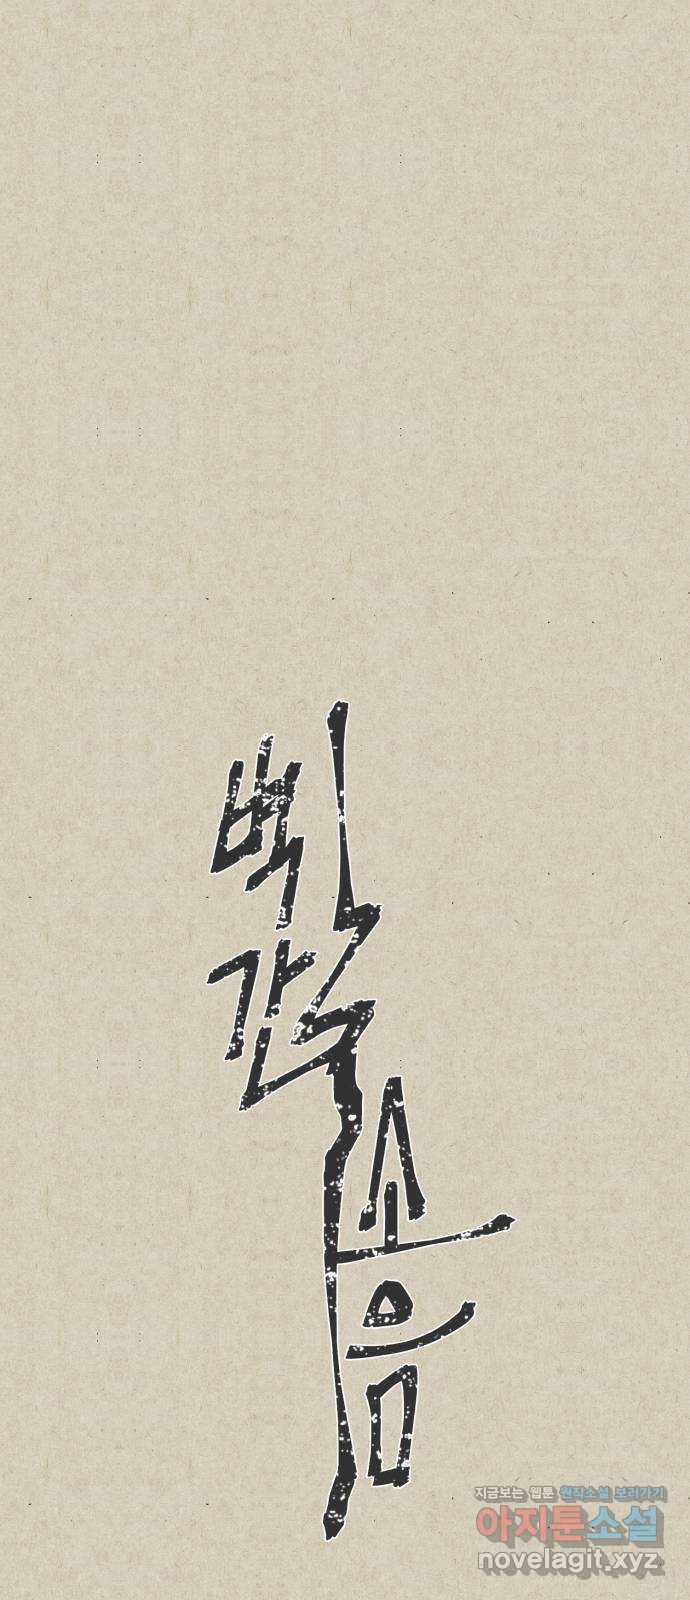 벽간
소음
지금보는 웹툰 원작소설 보러가기
아지툰소설
novelagit.xyz